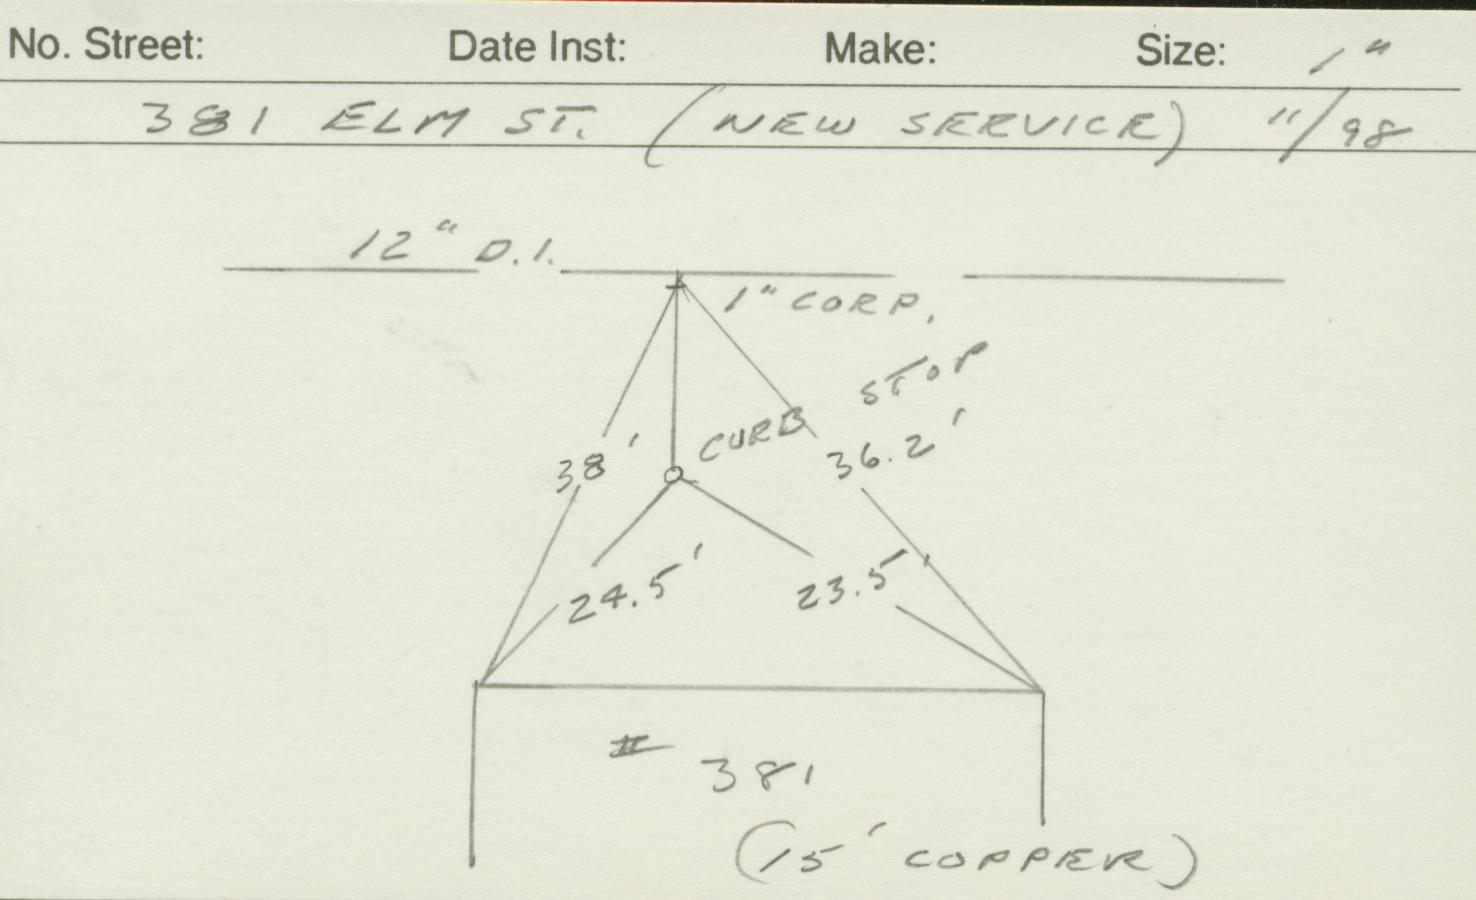 No. Street: Date Inst: Make: Size: 1"
381 ELM ST. (NEW SERVICE) 11/98
12" D.I.
1" CORP.
CURB STOP
38' 36.2'
24.5' 23.5'
# 381
(15' COPPER)